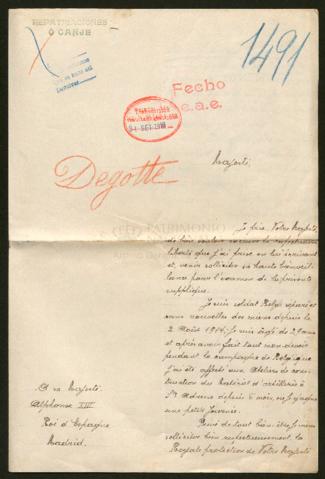 REPATRIACIONES
O CANJE
1491
Fecho
c.a.e.
Degotte
Majesté,
Je prie Votre Majesté,
de bien vouloir excuser la respectueuse
liberté que j'ai prise en lui écrivant
et, venir solliciter sa haute bienveil-
lance pour l'examen de la présente
supplique.
Je suis soldat Belge séparé et
sans nouvelles des miens depuis le
2 Août 1914; je suis âgé de
et après avoir fait tout mon devoir
pendant la campagne de Belgique
j'ai été affecté aux Ateliers de cons-
truction du Matériel d'artillerie à
depuis 6 mois, où je gagne
une petite journée.
bien être je viens
solliciter bien respectueusement la
Royale protection de Votre Majesté
A sa Majesté.
Alphonse XIII
Roi d'Espagne
Madrid.